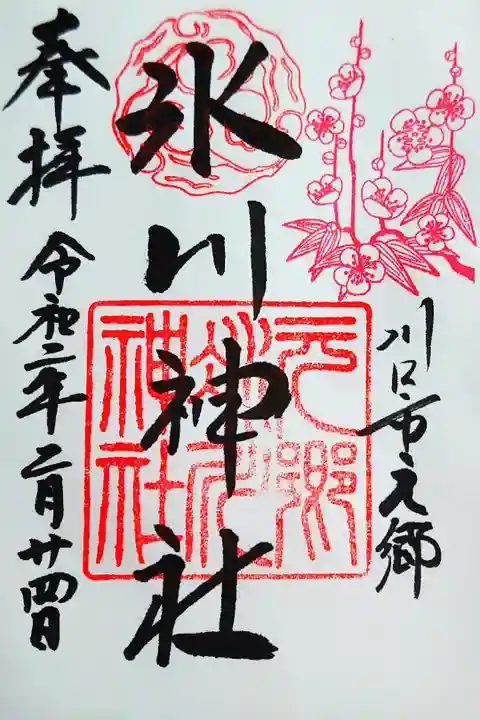 川口市元郷
氷川神社
奉拝
令和二年二月廿四日
元郷
氷川
神社